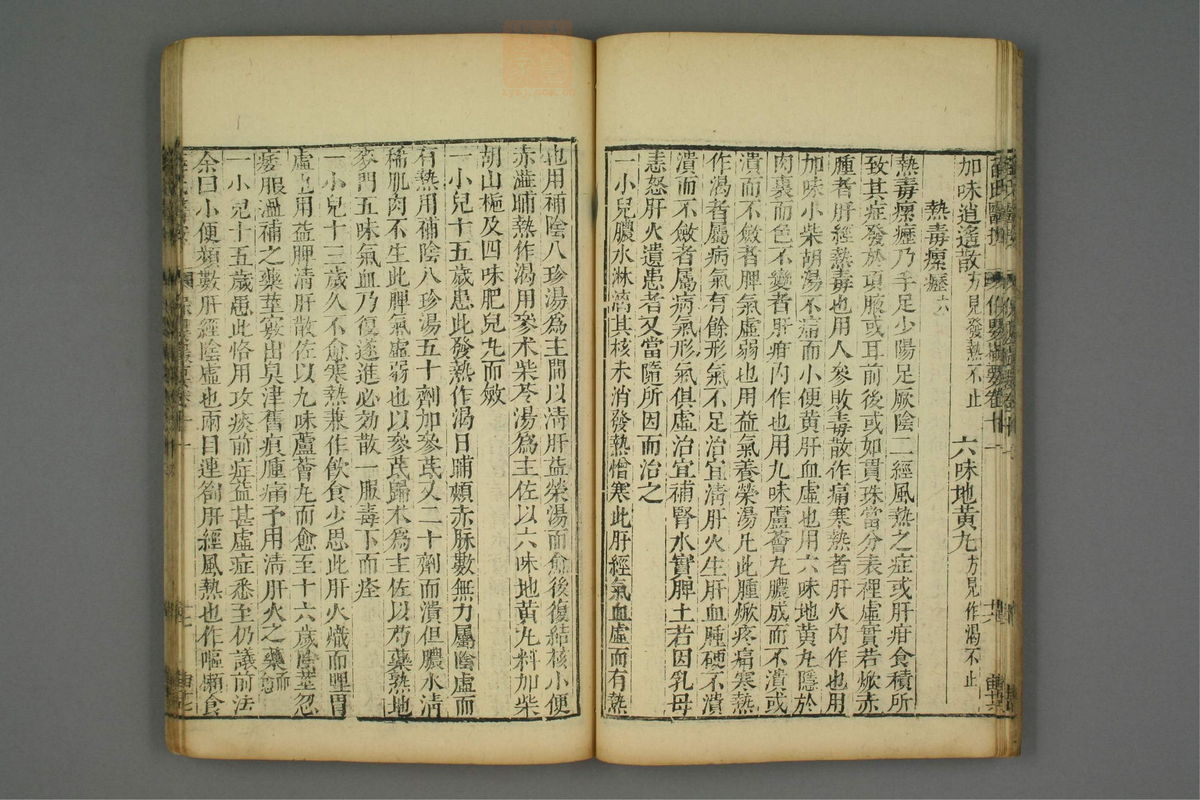 加味逍遙散方見發熱不止　六味地黄丸方見作渴不止
熱毒瘰癧十六
熱毒瘰癧乃手足少陽足厥陰二經風熱之症或肝疳食積所
致其症發於項腋或耳前後或如貫珠當分表裡虛實若焮赤
腫者肝經熱毒也用人參敗毒散作痛寒熱者肝火内作也用
加味小柴胡湯不痛而小便黄肝血虛也用六味地黄丸隱於
肉裏而色不變者肝疳内作也用九味蘆薈丸膿成而不潰或
潰而不斂者脾氣虛弱也用益氣養榮湯凡此腫焮疼痛寒熱
作渴者屬病氣有餘形氣不足治宜清肝火生肝血腫硬不潰
潰而不斂者屬病氣形氣俱虛治宜補腎水實脾土若因乳母
恚怒肝火遺患者又當隨所因而治之
一小兒膿水淋漓其核未消發熱憎寒此肝經氣血虛而有熱
也用補陰八珍湯爲主間以清肝益榮湯而愈後復結核小便
赤澁晡熱作渴用參术柴苓湯爲主佐以六味地黄丸料加柴
胡山梔及四味肥兒丸而斂
一小兒十五歲患此發熱作渴日晡頰赤脉數無力屬陰虛而
有熱用補陰八珍湯五十劑加參芪又二十劑而潰但膿水清
稀肌肉不生此脾氣虛弱也以參芪歸术爲主佐以芍藥熟地
麥門五味氣血乃復遂進必効散一服毒下而痊
一小兒十三歲久不愈寒熱兼作飲食少思此肝火熾而脾胃
虛也用益脾清肝散佐以九味蘆薈丸而愈至十六歲陰莖忽
痿服溫補之藥莖竅出臭津舊痕腫痛予用清肝火之藥而愈
一小兒十五歲患此恪用攻痰前症益甚虛症悉至仍議前法
余曰小便頻數肝經陰虛也兩目連劄肝經風熱也作嘔懶食